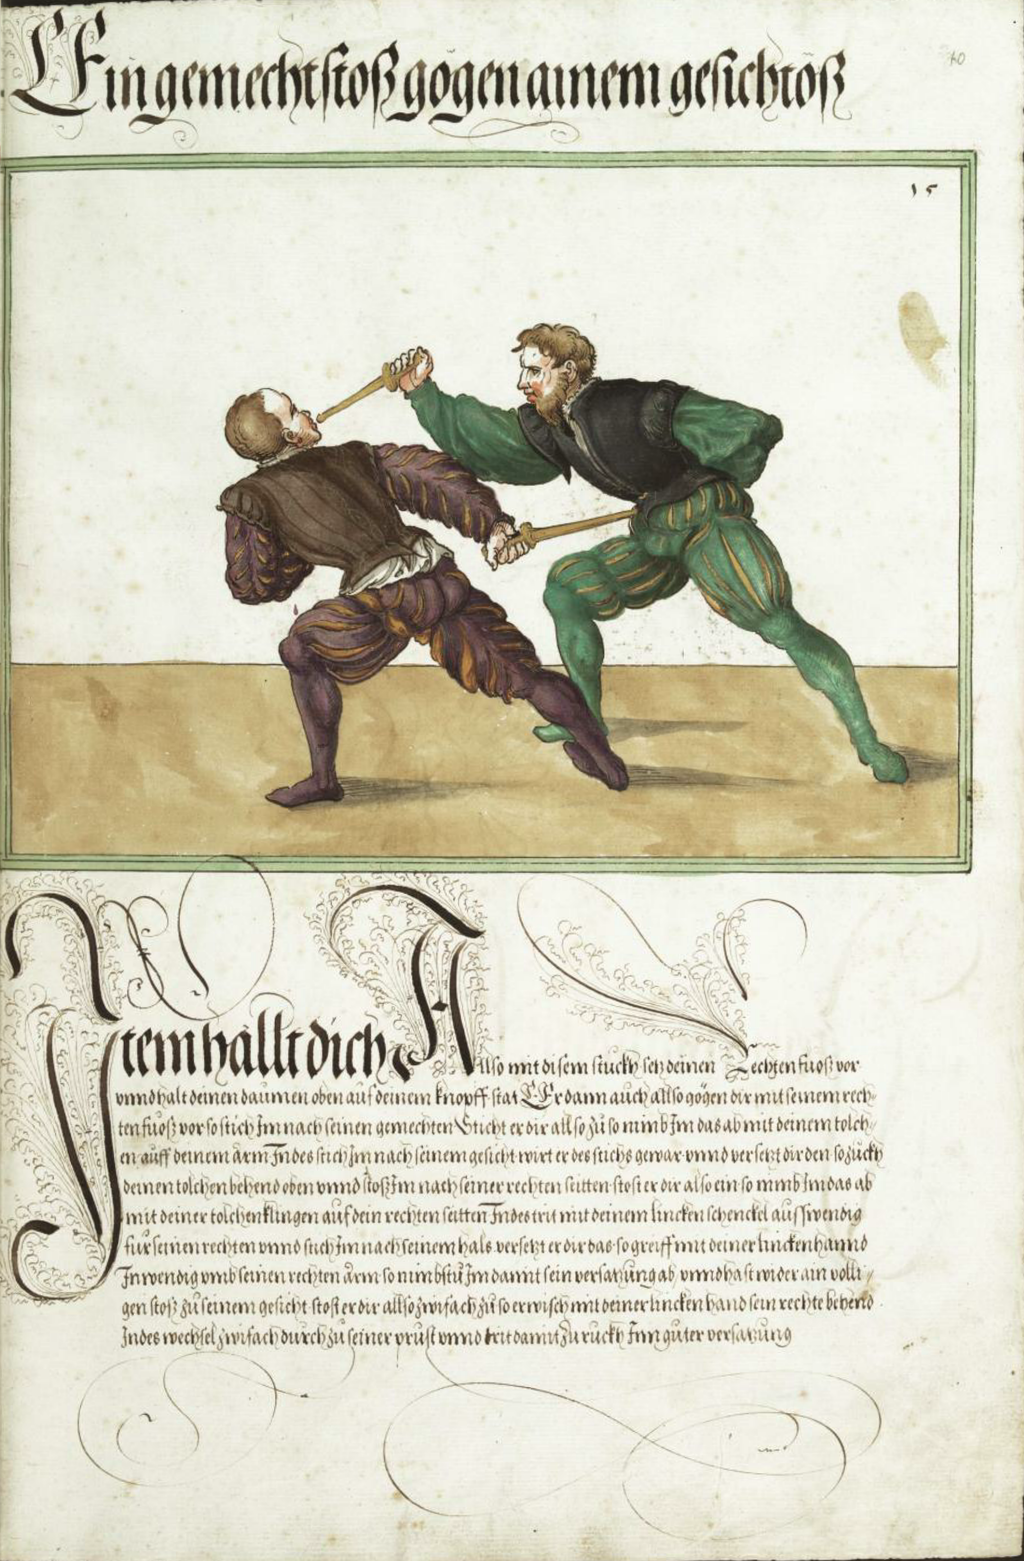 Ein gemechtstoß gögen ainem gesichtöß
40
15
Item hallt dich Allso mit disem stuckh setz deinen Rechten fuoß vor
vnnd halt deinen daumen oben auf deinem knopff stat Er dann auch allso gögen dir mit seinem rech-
ten fuoß vor so stich Im nach seinen gemechten Sticht er dir allso zu so nimb Im das ab mit deinem tolch-
en auff deinem arm Indes stich Im nach seinem gesicht wirt er des stichs gewar vnnd versetzt dir den so zuckh
deinen tolchen behend oben vnnd stoß Im nach seiner rechten seitten stost er dir also ein so nimb Im das ab
mit deiner tolchenklingen auf dein rechten seitten Indes trit mit deinem lincken schenckel ausswendig
für seinen rechten vnnd stich Im nach seinem hals versetzt er dir das so greiff mit deiner lincken hannd
Inwendig vmb seinen rechten arm so nimbstu Im damit sein versatzung ab vnnd hast wider ain volli-
gen stoß zu seinem gesicht stost er dir allso zwifach zu so erwisch mit deiner lincken hand sein rechte behend
Indes wechsel zwifach durch zu seiner prust vnnd trit damit zu ruckh Inn guter versatzung